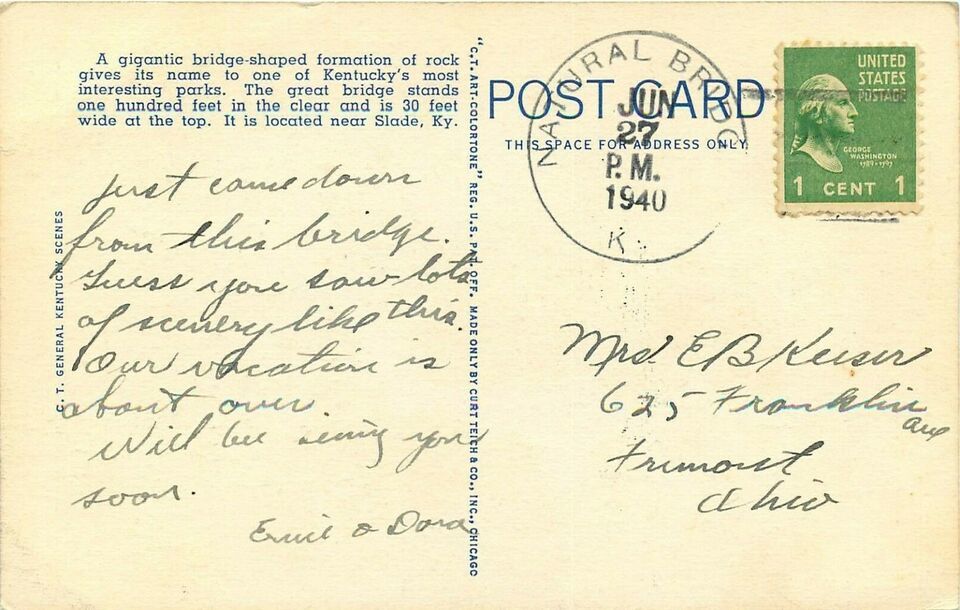 A gigantic bridge-shaped formation of rock
gives its name to one of Kentucky's most
interesting parks. The great bridge stands
one hundred feet in the clear and is 30 feet
wide at the top. It is located near Slade, Ky.
C. T. GENERAL KENTUCKY SCENES
just came down
from this bridge.
Guess you saw lots
of scenery like this.
Our vacation is
about over
Will be seeing you
soon.
Ernie & Dora
"C.T. ART-COLORTONE" REG. U.S. PAT. OFF. MADE ONLY BY CURT TEICH & CO., INC., CHICAGO
POST CARD
THIS SPACE FOR ADDRESS ONLY
NATURAL BRIDG
JUN
27
P.M.
1940
K
UNITED
STATES
POSTAGE
GEORGE
WASHINGTON
1789-1797
1 CENT 1
Mrs E B Keiser
625 Franklin
ave
Fremont
Ohio